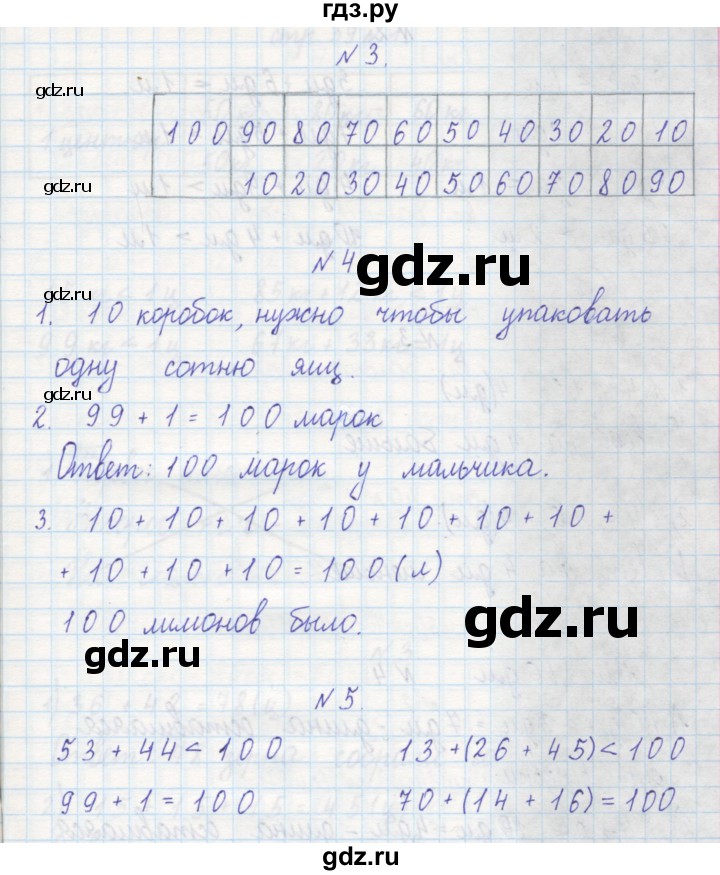 гдз.ру
N 3.
gdz.ru
100 90 80 70 60 50 40 30 20 10
gdz.ru
10 20 30 40 50 60 70 80 90
gdz.ru
N 4
gdz.ru
1. 10 коробок, нужно чтобы упаковать
одну сотню яиц.
gdz.ru
2. 99 + 1 = 100 марок
Ответ: 100 марок у мальчика.
3. 10 + 10 + 10 + 10 + 10 + 10 + 10 +
+ 10 + 10 + 10 = 100 (л)
100 лимонов было.
gdz.ru
gdz.ru
N 5.
53 + 44 < 100 13 + (26 + 45) < 100
99 + 1 = 100 70 + (14 + 16) = 100
gdz.ru
gdz.ru